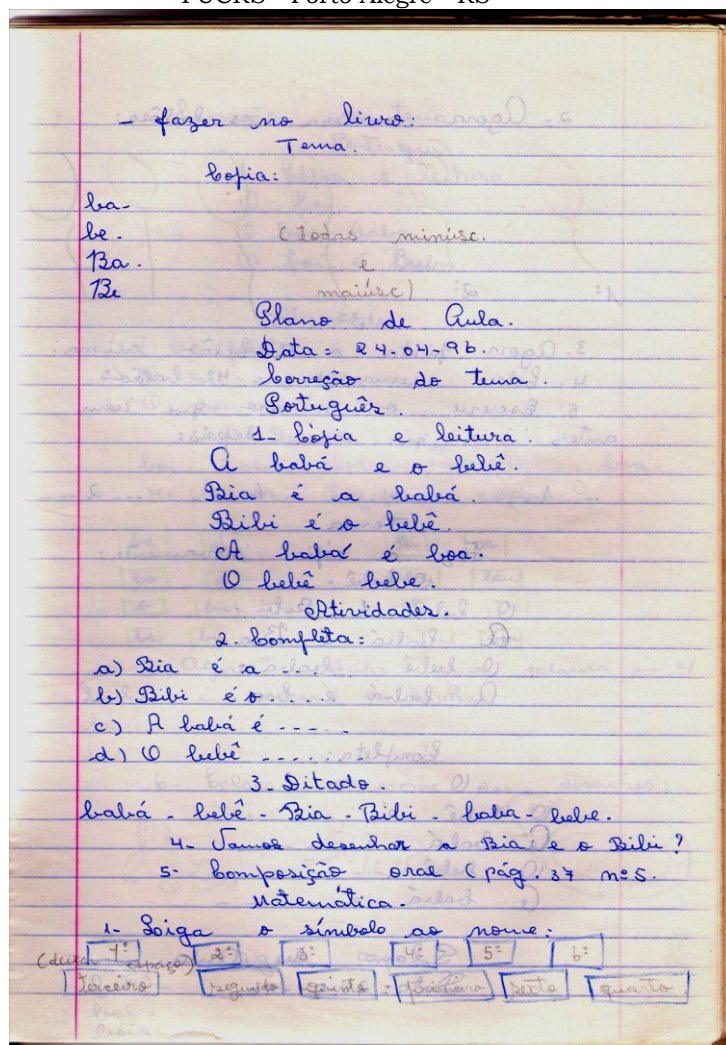 PUCRS - Porto Alegre - RS
- fazer no livro:
Tema.
Copia:
ba-
be.
(todas minúsc.
Ba.
e
Be
maiúsc)
Plano de Aula.
Data: 24-04-96.
Correção do tema.
Português.
1- Cópia e leitura.
A babá e o bebê.
Bia é a babá.
Bibi é o bebê.
A babá é boa.
O bebê bebe.
Atividades.
2. Completa:
a) Bia é a .....
b) Bibi é o .....
c) A babá é -----
d) O bebê .......
3- Ditado.
babá - bebê - Bia - Bibi - baba - bebe.
4- Vamos desenhar a Bia e o Bibi?
5- Composição oral (pág. 37 nº 5.
Matemática.
1- Loiga o símbolo ao nome:
(deixar espaço) 1º 2º 3º 4º 5º 6º
terceiro segundo quinto primeiro sexto quarto